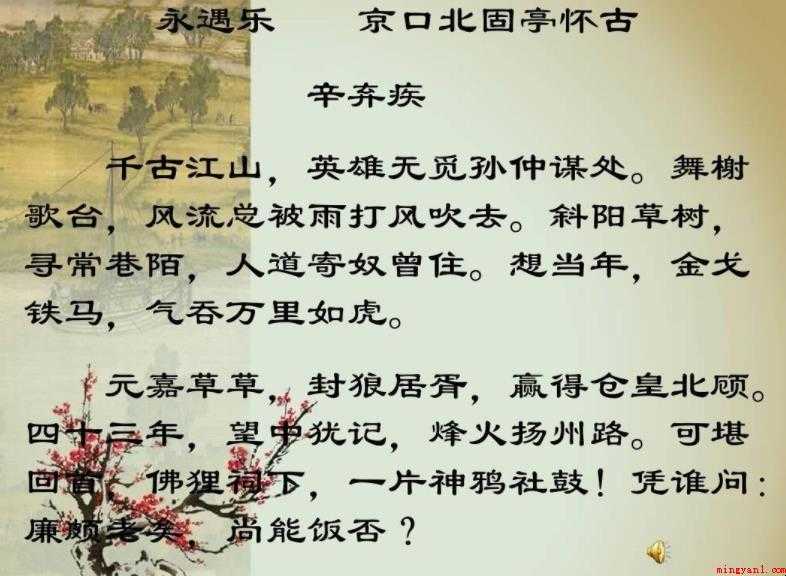 永遇乐 京口北固亭怀古
辛弃疾
千古江山，英雄无觅孙仲谋处。舞榭
歌台，风流总被雨打风吹去。斜阳草树，
寻常巷陌，人道寄奴曾住。想当年，金戈
铁马，气吞万里如虎。
元嘉草草，封狼居胥，赢得仓皇北顾。
四十三年，望中犹记，烽火扬州路。可堪
回首，佛狸祠下，一片神鸦社鼓！凭谁问：
廉颇老矣，尚能饭否？
mingyan1.com